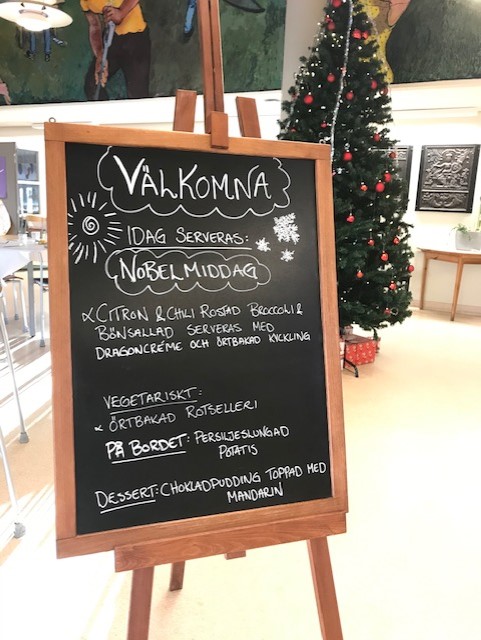 VÄLKOMNA
IDAG SERVERAS:
NOBELMIDDAG
CITRON & CHILI ROSTAD BROCCOLI &
BÖNSALLAD SERVERAS MED
DRAGONCRÉME OCH ÖRTBAKAD KYCKLING
VEGETARISKT:
ÖRTBAKAD ROTSELLERI
PÅ BORDET: PERSILJESLUNGAD
POTATIS
DESSERT: CHOKLADPUDDING TOPPAD MED
MANDARIN